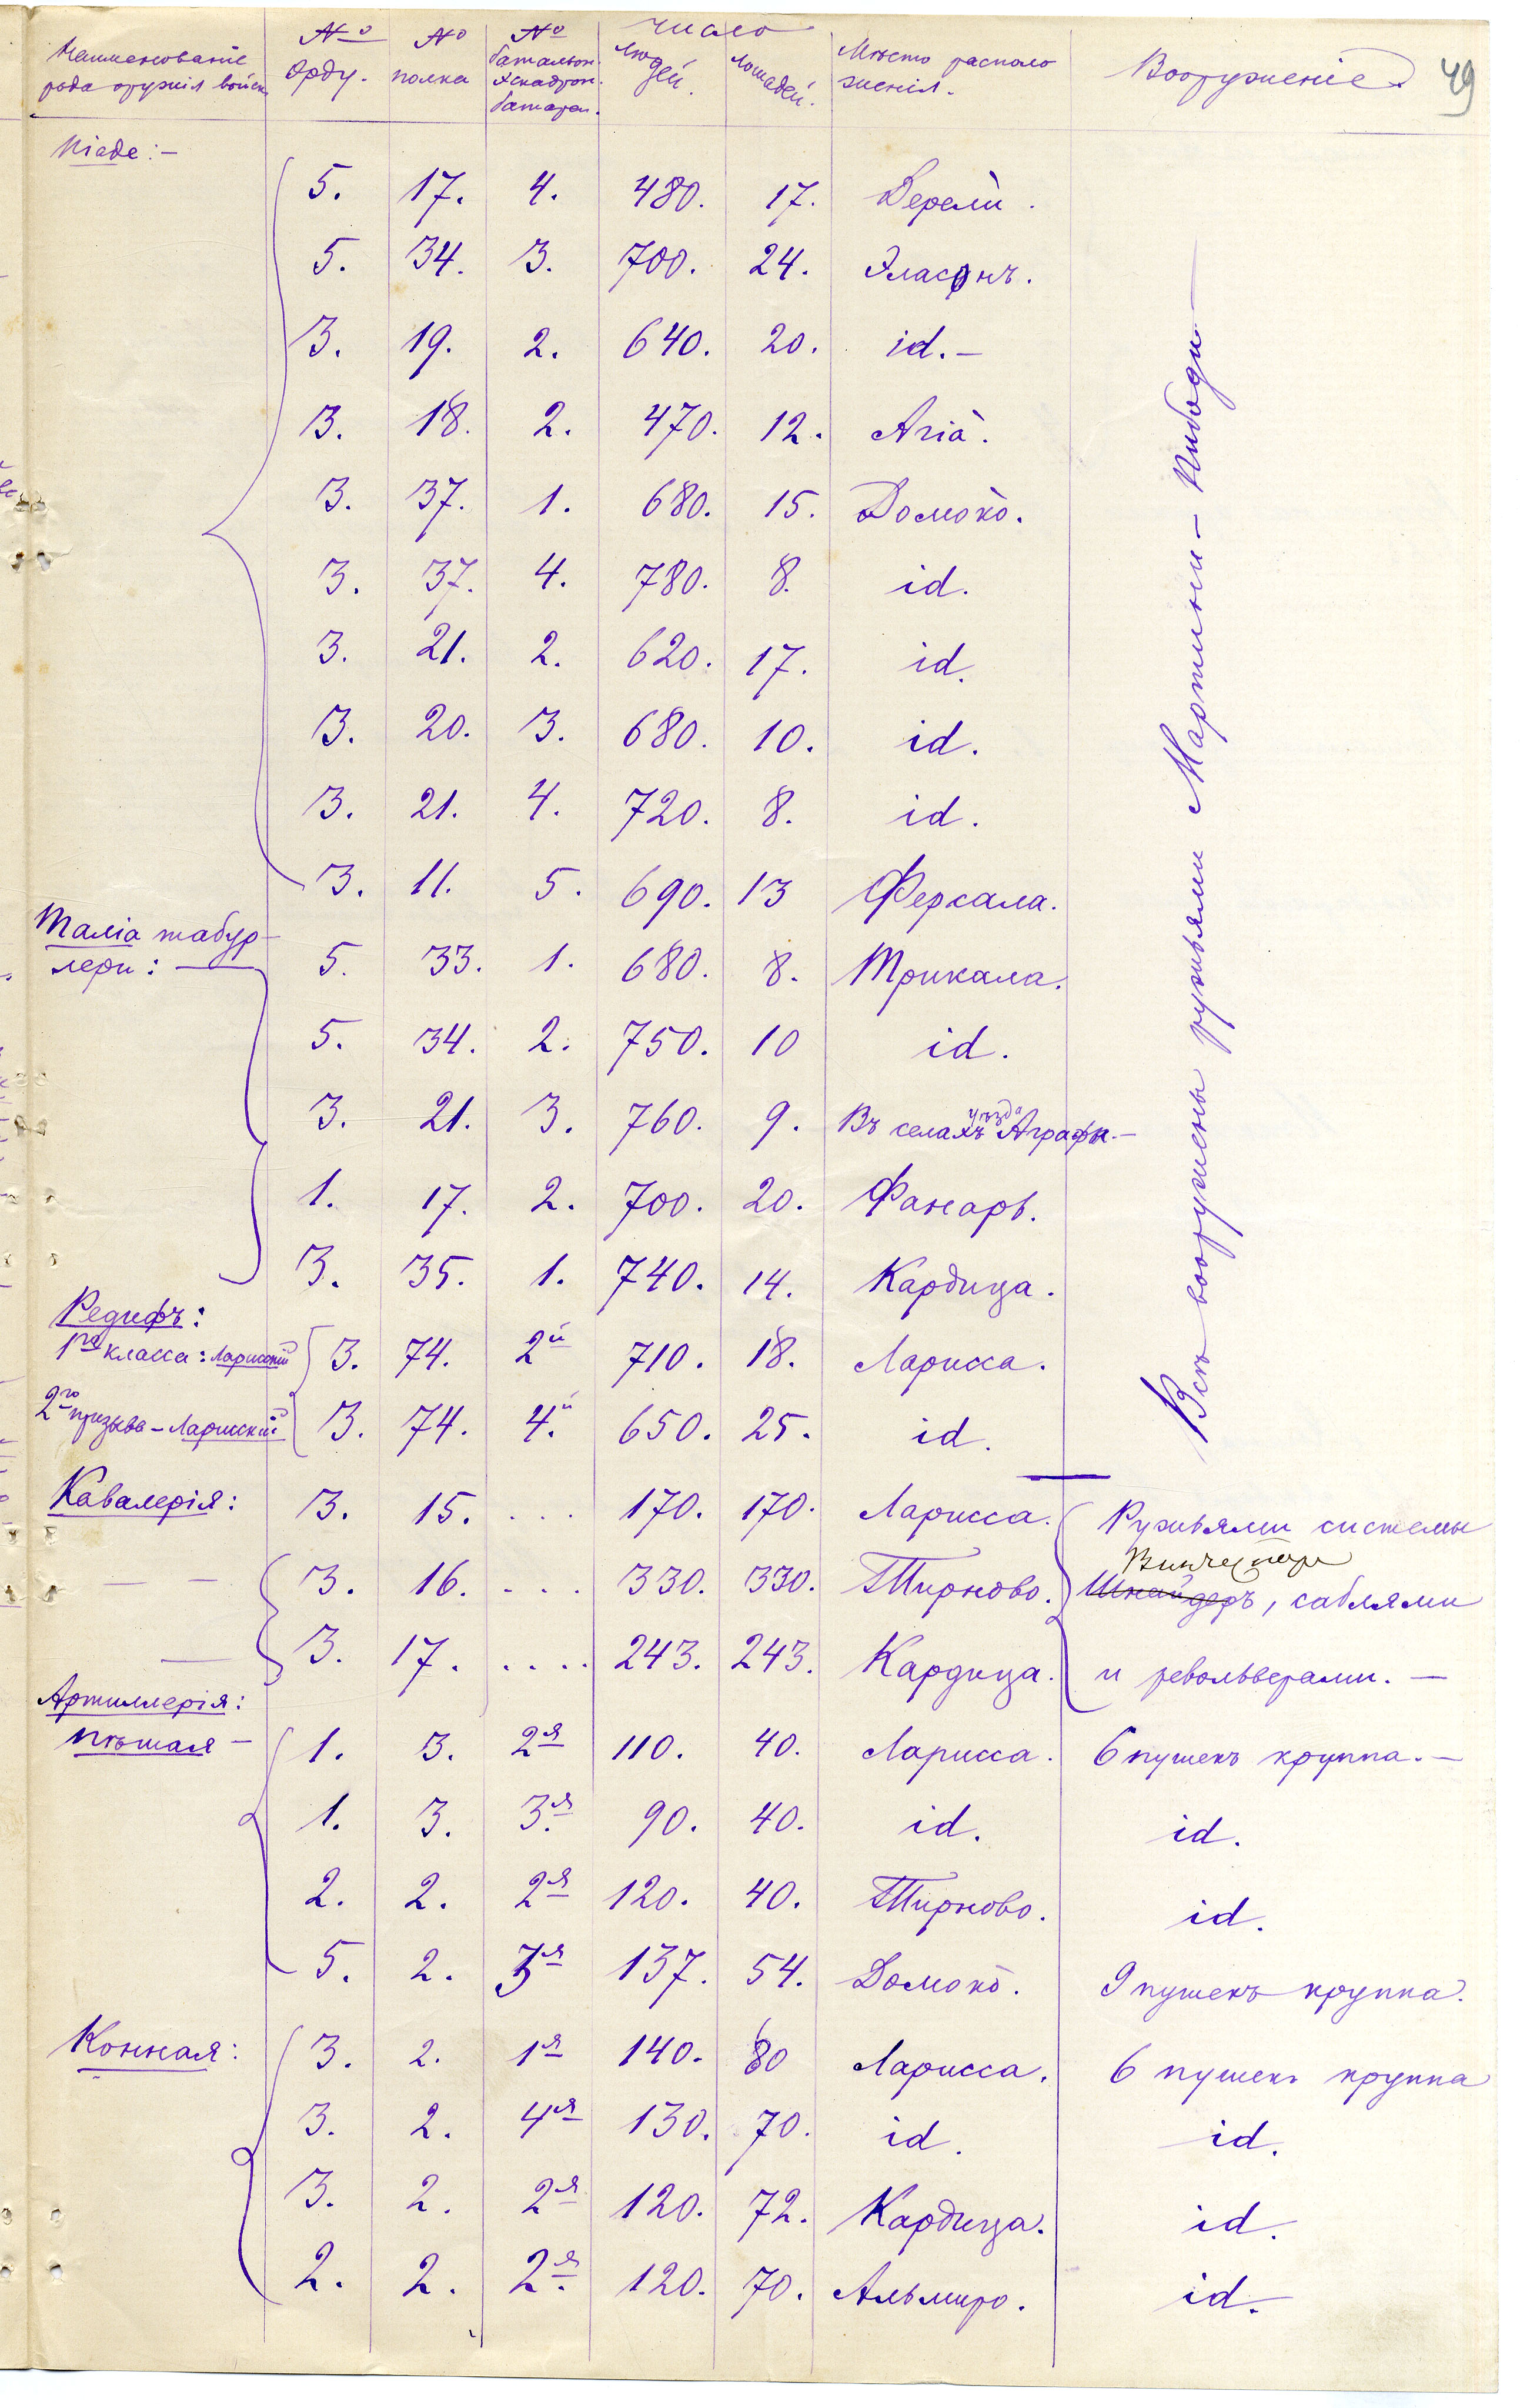 Наименованіе рода оружія войск. № орду. № полка № баталіон. эскадрон. батареи. Число людей. лошадей. Мѣсто расположенія. Вооруженіе. 49
Nizde:—
5. 17. 4. 480. 17. Дерели.
5. 34. 3. 700. 24. Эласонъ.
3. 19. 2. 640. 20. id.—
3. 18. 2. 470. 12. Агіа.
3. 37. 1. 680. 15. Домоко.
3. 37. 4. 780. 8. id.
3. 21. 2. 620. 17. id.
3. 20. 3. 680. 10. id.
3. 21. 4. 720. 8. id.
3. 11. 5. 690. 13 Ферсала.
Таліа табур-
лери:— 5. 33. 1. 680. 8. Трикала.
5. 34. 2. 750. 10 id.
3. 21. 3. 760. 9. Въ селахъ уѣзда Аграфы.—
1. 17. 2. 700. 20. Фанаръ.
3. 35. 1. 740. 14. Кардица.
Всѣ вооружены ружьями Мартини-Пибоди
Редифъ:
1го класса: Ларисскій 3. 74. 2й 710. 18. Ларисса.
2го призыва - Ларисскій 3. 74. 4й 650. 25. id.
Кавалерія: 3. 15. ... 170. 170. Ларисса. Ружьями системы
Винчестера
— — 3. 16. .... 330. 330. Тирново. Шнейдеръ, саблями
— 3. 17. .... 243. 243. Кардица. и револьверами.—
Артиллерія:
пѣшая — 1. 3. 2я 110. 40. Ларисса. 6 пушекъ круппа.—
1. 3. 3я 90. 40. id. id.
2. 2. 2я 120. 40. Тирново. id.
5. 2. 3я 137. 54. Домоко. 9 пушекъ круппа.
Конная: 3. 2. 1я 140. 80 Ларисса. 6 пушекъ круппа
3. 2. 4я 130. 70. id. id.
3. 2. 2я 120. 72. Кардица. id.
2. 2. 2я 120. 70. Альмиро. id.